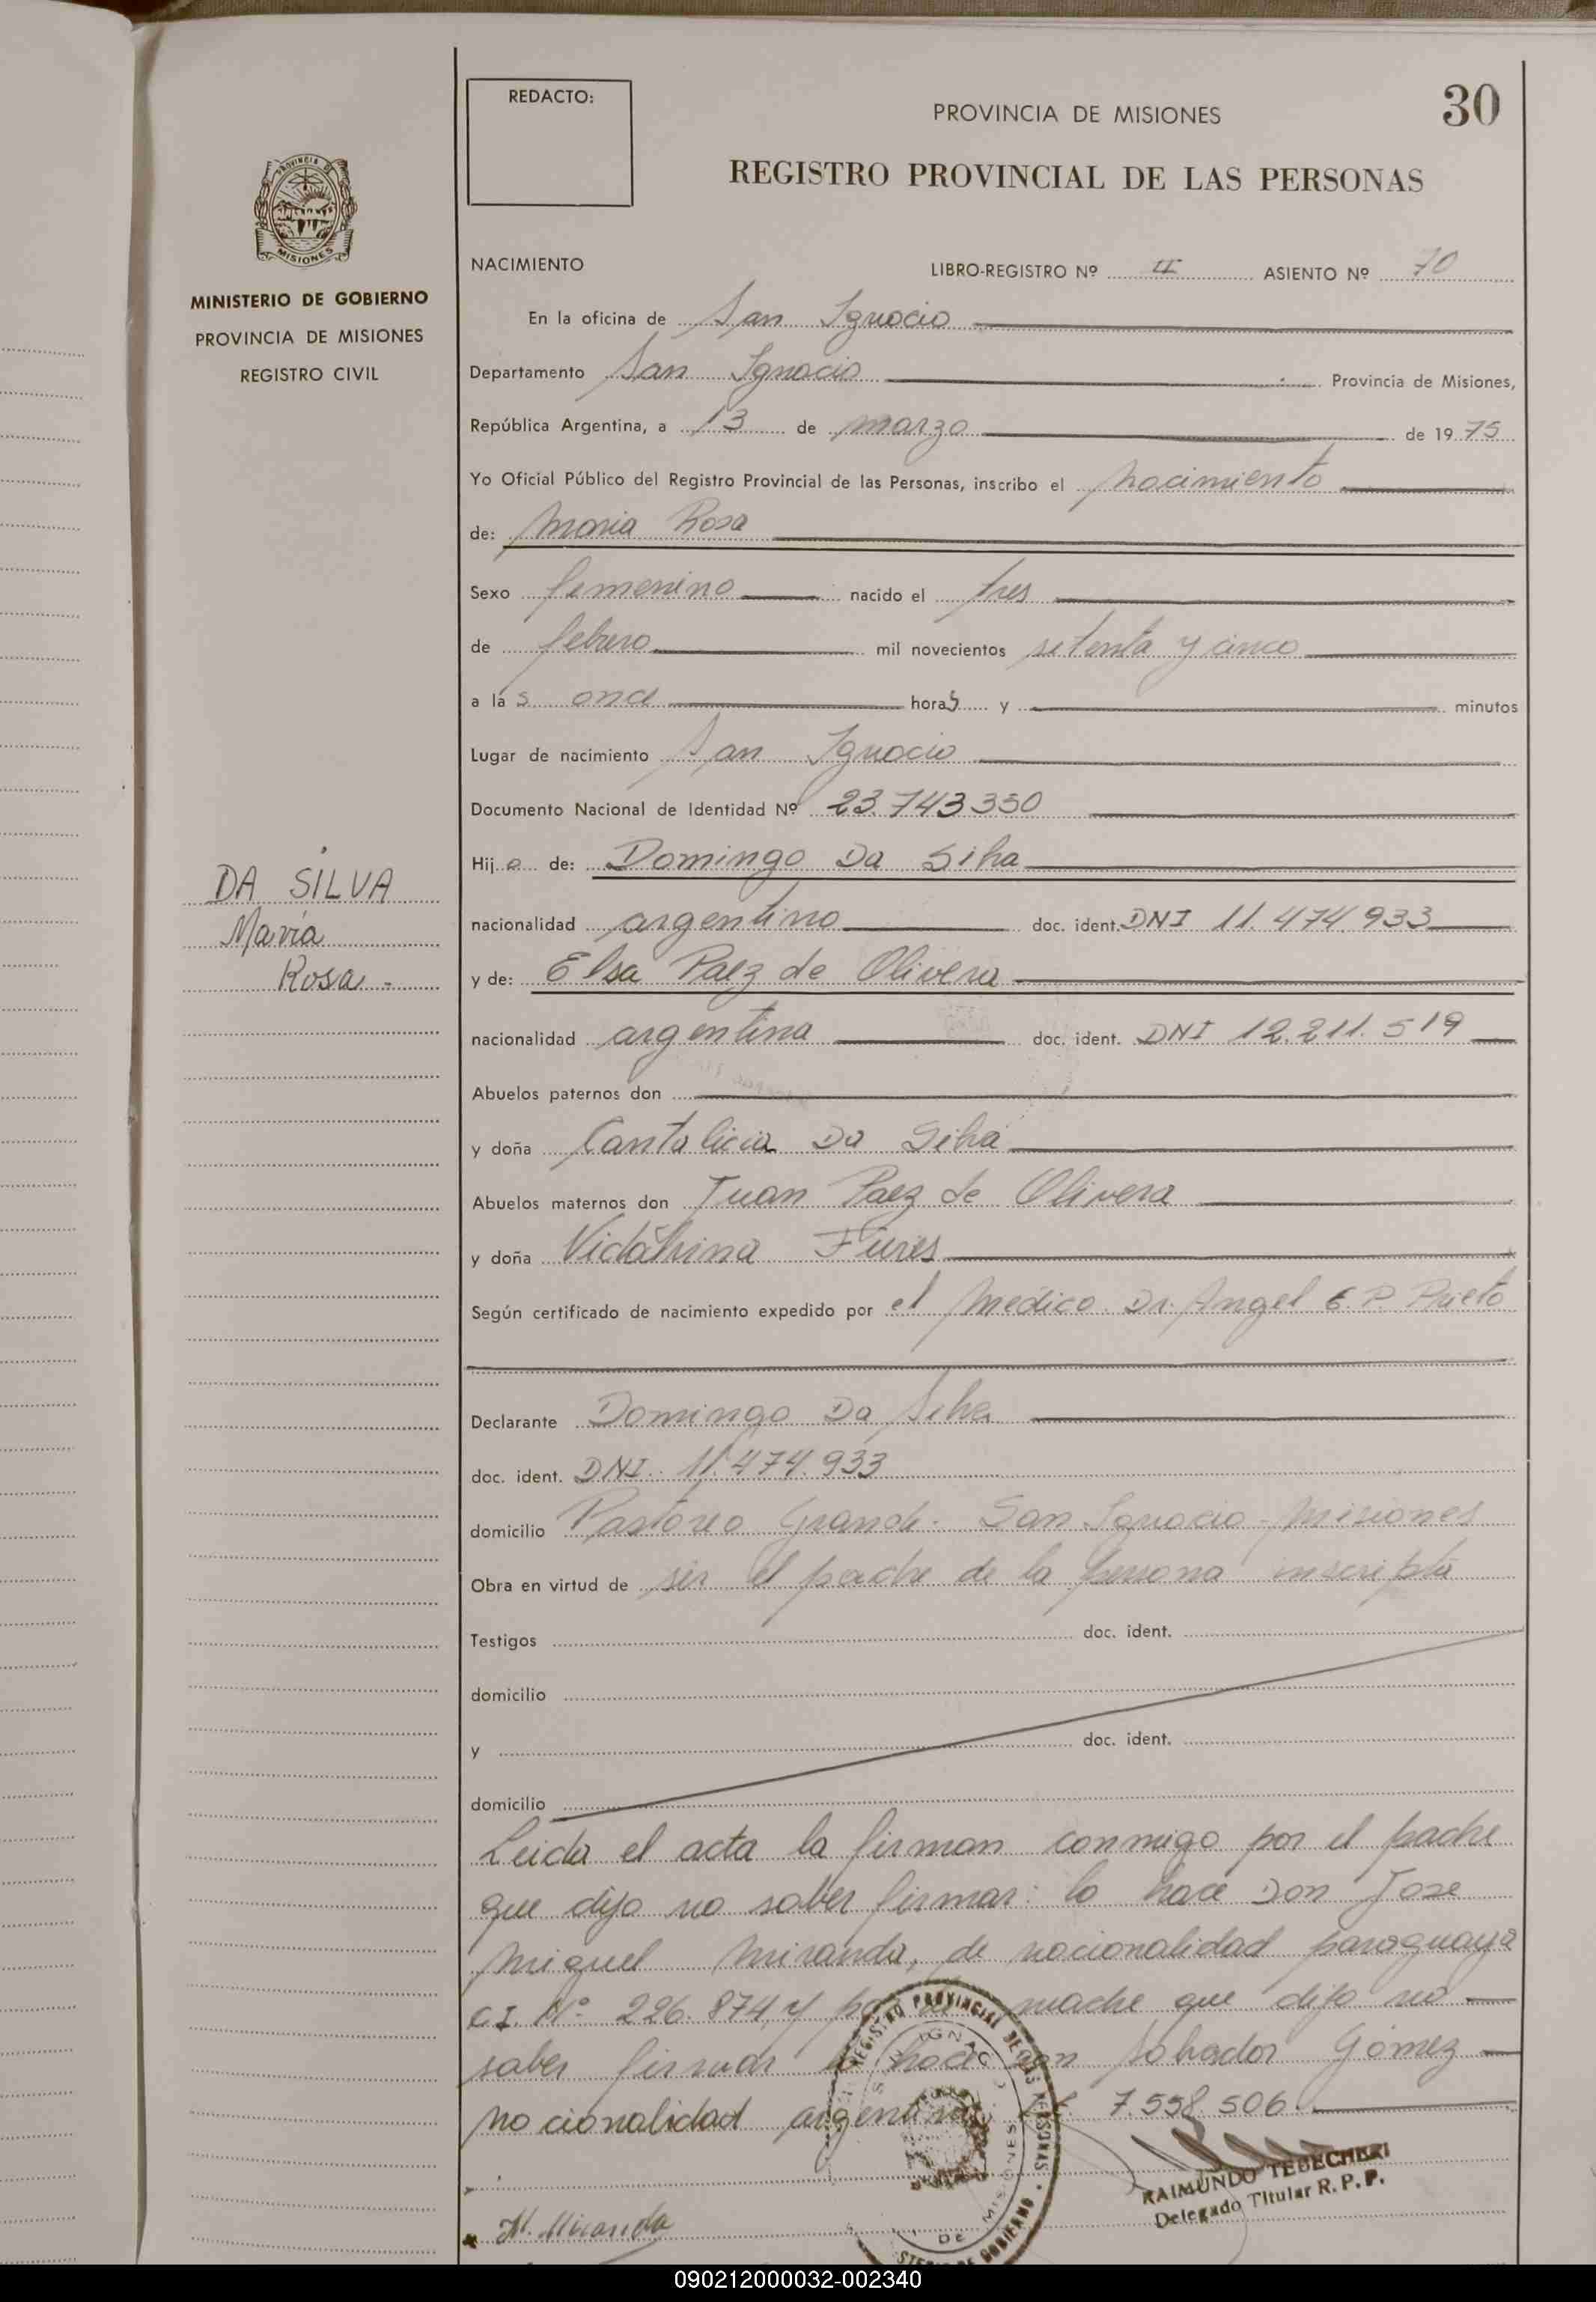 REDACTO:
PROVINCIA DE MISIONES
30
REGISTRO PROVINCIAL DE LAS PERSONAS
PROVINCIA DE
MISIONES
MINISTERIO DE GOBIERNO
PROVINCIA DE MISIONES
REGISTRO CIVIL
NACIMIENTO
LIBRO-REGISTRO Nº II ASIENTO Nº 70
En la oficina de San Ignacio
Departamento San Ignacio Provincia de Misiones,
República Argentina, a 13 de marzo de 1975
Yo Oficial Público del Registro Provincial de las Personas, inscribo el nacimiento
de: Maria Rosa
Sexo femenino nacido el tres
de febrero mil novecientos setenta y cinco
a las once horas y minutos
Lugar de nacimiento San Ignacio
Documento Nacional de Identidad Nº 23.743350
Hija de: Domingo Da Silva
DA SILVA
María
Rosa -
nacionalidad argentino doc. ident. DNI 11.474.933
y de: Elsa Paez de Olivera
nacionalidad argentina doc. ident. DNI 12.211.519
Abuelos paternos don
y doña Cantalicia Da Silva
Abuelos maternos don Juan Paez de Olivera
y doña
Según certificado de nacimiento expedido por el Médico Dr. Angel E. P. Prieto
Declarante Domingo Da Silva
doc. ident. DNI. 11.474.933
domicilio Pastoreo Grande - San Ignacio - Misiones
Obra en virtud de ser el padre de la persona inscripta
Testigos doc. ident.
domicilio
y doc. ident.
domicilio
Leida el acta la firman conmigo por el padre
que dijo no saber firmar: lo hace Don Jose
Miguel Miranda, de nacionalidad paraguaya
C.I. Nº 226.874, y por la madre que dijo no
saber firmar lo hace Don Salvador Gómez
nacionalidad argentina 7.558.506
REGISTRO PROVINCIAL DE LAS PERSONAS
S. IGNACIO
DE MISIONES
RAIMUNDO TEBECHERI
Delegado Titular R. P. P.
M. Miranda
090212000032-002340